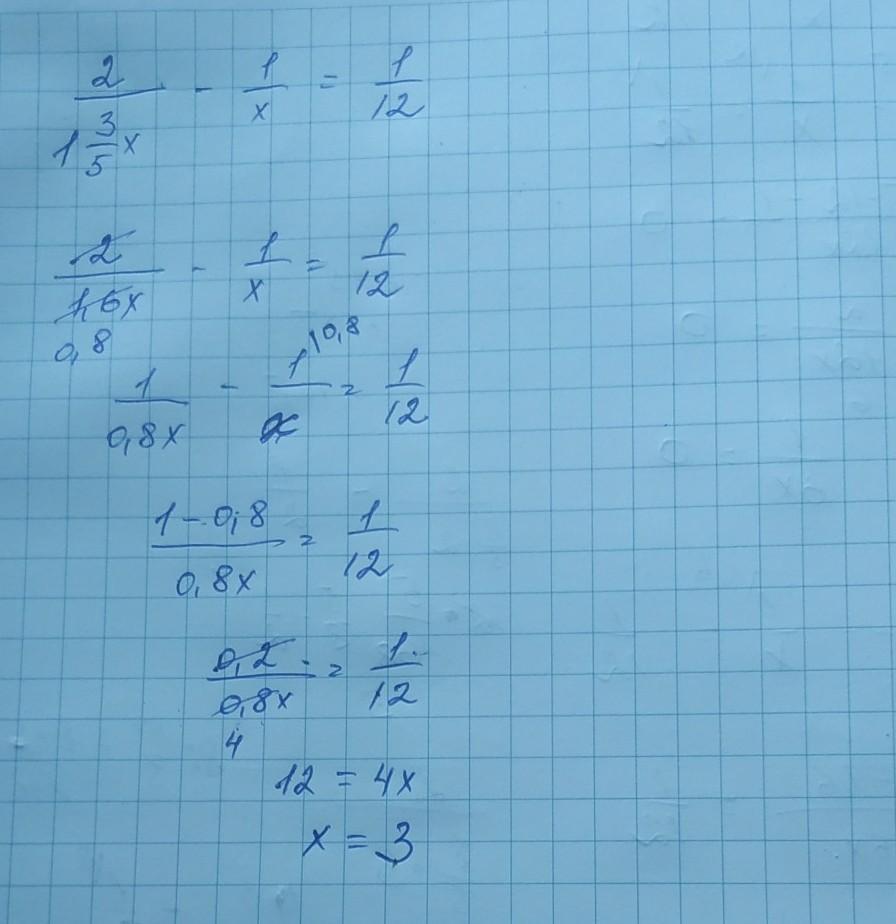 2/(1 3/5 x) - 1/x = 1/12
2/(1,6x) - 1/x = 1/12
0,8
1/(0,8x) - 1\0,8/x = 1/12
(1 - 0,8)/(0,8x) = 1/12
0,2/(0,8x) = 1/12
4
12 = 4x
x = 3